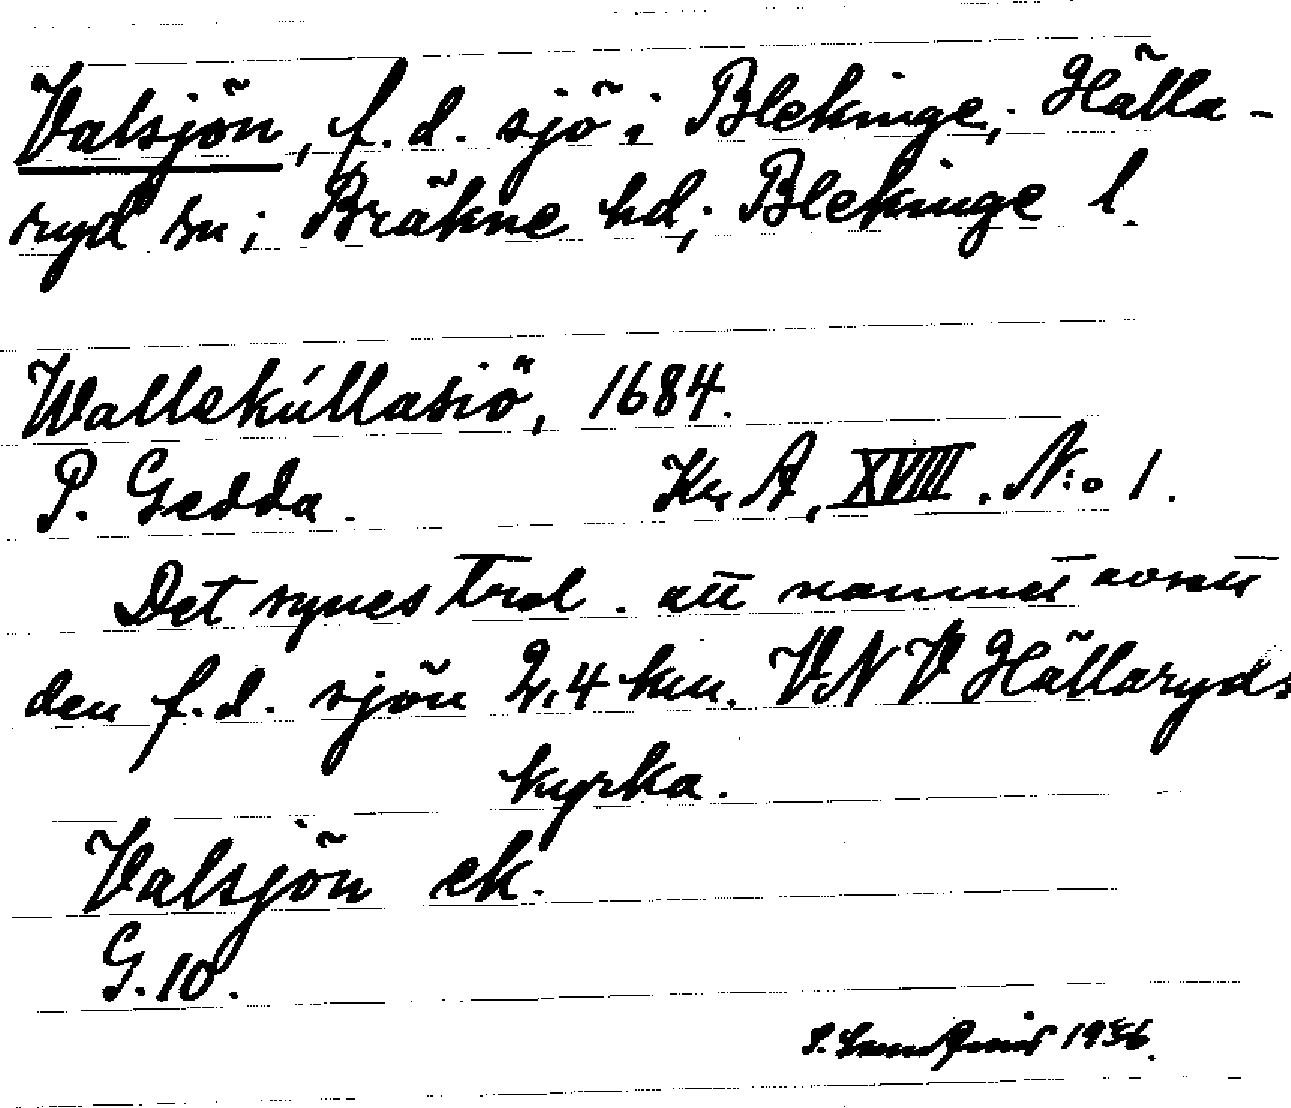 Valsjön, f.d. sjö i Blekinge; Hälla-
ryd sn; Bräkne hd; Blekinge l.
Wallekúllasiö, 1684.
P. Gedda. Kr A, XVIII. N:o 1.
Det synes trol. att namnet avsett
den f.d. sjön 2,4 km. VNV Hällaryds
kyrka.
Valsjön ek.
G. 10.
S. 1936.